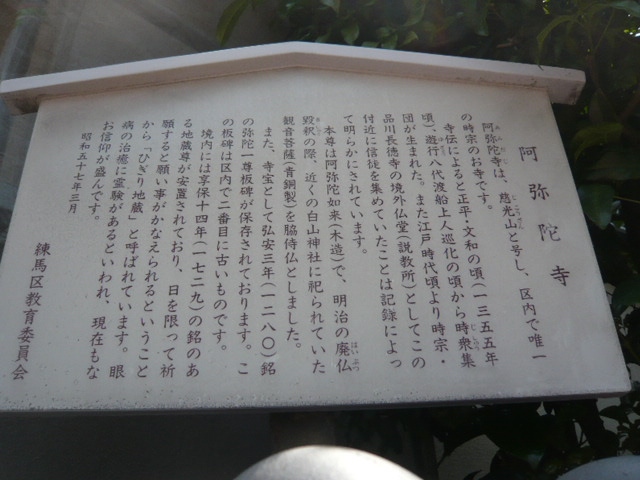 阿弥陀寺
阿弥陀寺は、慈光山と号し、区内で唯一
の時宗のお寺です。
寺伝によると正平・文和の頃(一三五五年
頃)、遊行八代渡船上人巡化の頃から時衆集
団が生まれた。また江戸時代頃より時宗・
品川長徳寺の境外仏堂(説教所)としてこの
付近に信徒を集めていたことは記録によっ
て明らかにされています。
本尊は阿弥陀如来(木造)で、明治の廃仏
毀釈の際、近くの白山神社に祀られていた
観音菩薩(青銅製)を脇侍仏としました。
また、寺宝として弘安三年(一二八〇)銘
の弥陀一尊板碑が保存されております。こ
の板碑は区内で二番目に古いものです。
境内には享保十四年(一七二九)の銘のあ
る地蔵尊が安置されており、日を限って祈
願すると願い事がかなえられるということ
から「ひぎり地蔵」と呼ばれています。眼
病の治癒に霊験があるといわれ、現在もな
お信仰が盛んです。
昭和五十七年三月
練馬区教育委員会